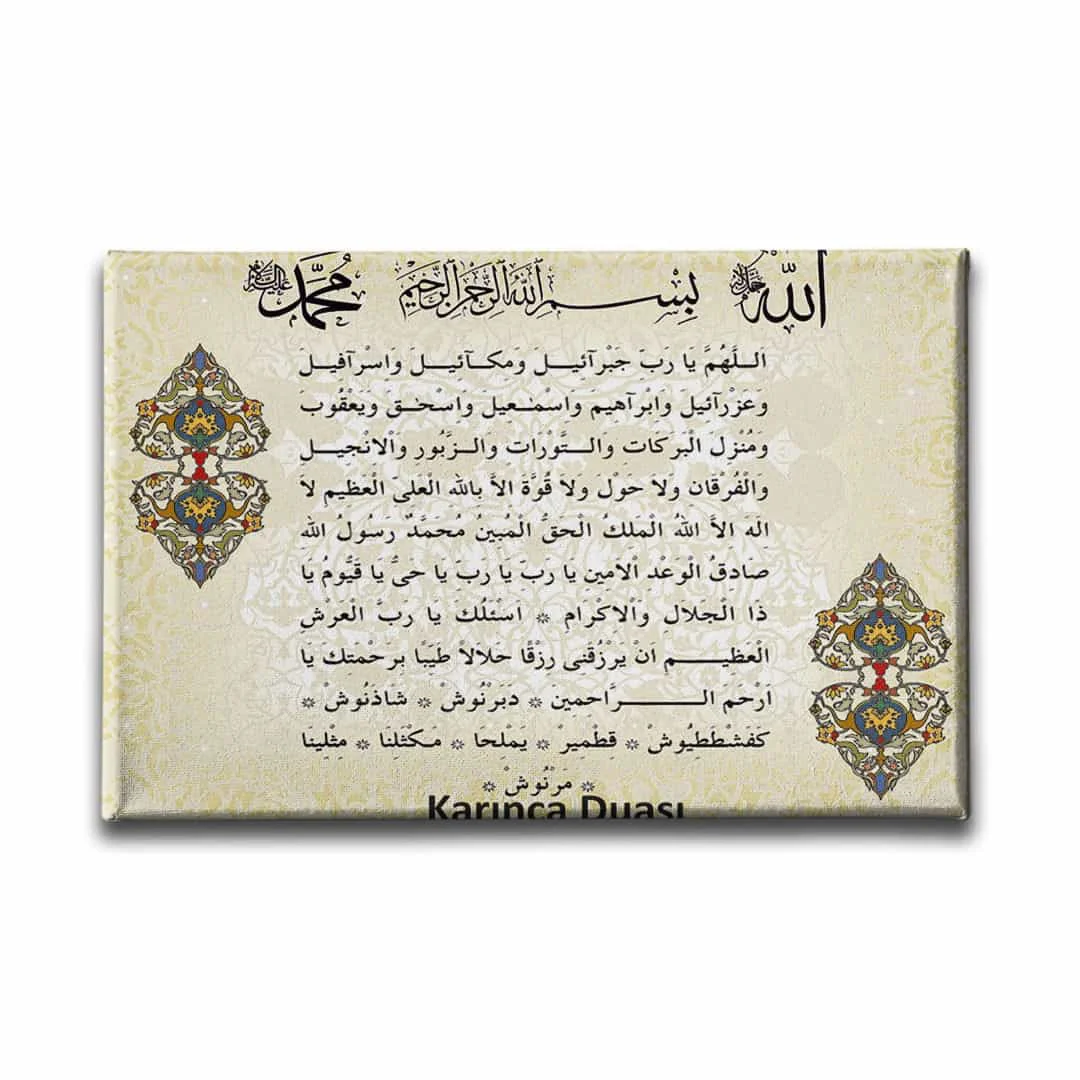 الله جل جلاله بِسْمِ اللهِ الرَّحْمٰنِ الرَّحِيمِ مُحَمَّد عليه السلام
اللَّهُمَّ يَا رَبَّ جَبْرَآئِيلَ وَمِكَآئِيلَ وَاِسْرَآفِيلَ
وَعَزْرَآئِيلَ وَاِبْرَآهِيمَ وَاِسْمٰعِيلَ وَاِسْحٰقَ وَيَعْقُوبَ
وَمُنْزِلَ الْبَرَكَاتِ وَالتَّوْرَاتِ وَالزَّبُورِ وَالْاِنْجِيلِ
وَالْفُرْقَانِ وَلاَ حَوْلَ وَلاَ قُوَّةَ اِلاَّ بِاللهِ الْعَلِىِّ الْعَظِيمِ لاَ
اِلٰهَ اِلاَّ اللهُ الْمَلِكُ الْحَقُّ الْمُبِينُ مُحَمَّدٌ رَسُولُ اللهِ
صَادِقُ الْوَعْدِ الْاَمِينِ يَا رَبِّ يَا رَبِّ يَا حَىُّ يَا قَيُّومُ يَا
ذَا الْجَلَالِ وَالْاِكْرَامِ * اَسْئَلُكَ يَا رَبَّ الْعَرْشِ
الْعَظِيمِ اَنْ يَرْزُقَنِى رِزْقًا حَلَالًا طَيِّبًا بِرَحْمَتِكَ يَا
اَرْحَمَ الرَّاحِمِينَ * دَبَرْنُوشْ * شَاذَنُوشْ *
كَفَشْطَطَيُوشْ * قِطْمِيرْ * يَمْلِحَا * مَكْثَلِنَا * مِثْلِينَا
* مَرْنُوشْ *
Karınca Duası